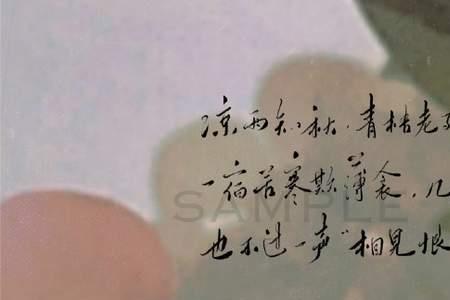 凉雨知秋，青梧老
一宿苦寒欺薄衾，几
也不过一声“相见恨
SAMPLE